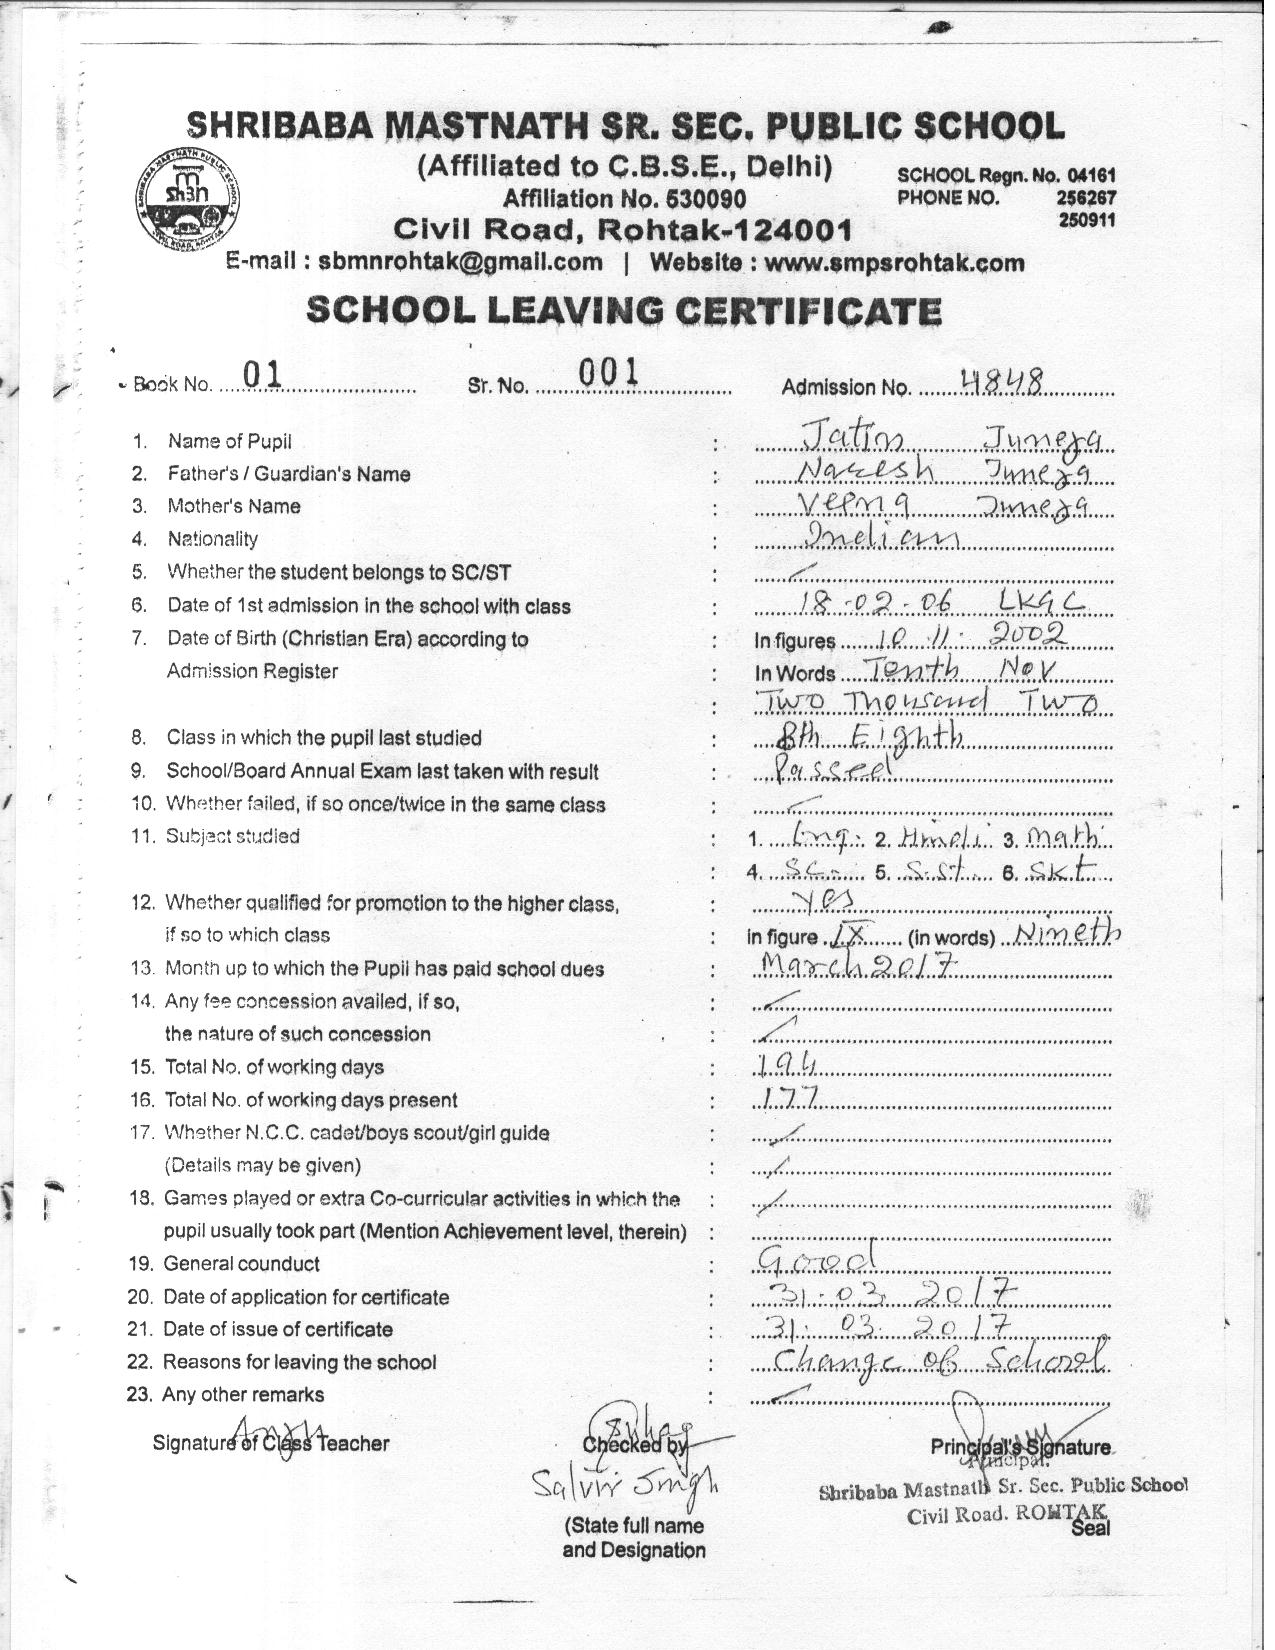 SHRIBABA MASTNATH SR. SEC. PUBLIC SCHOOL
(Affiliated to C.B.S.E., Delhi)
SCHOOL Regn. No. 04161
Affiliation No. 530090
PHONE NO. 256267
250911
Civil Road, Rohtak-124001
E-mail : sbmnrohtak@gmail.com | Website : www.smpsrohtak.com
SCHOOL LEAVING CERTIFICATE
Book No. 01 Sr. No. 001 Admission No. 4848
1. Name of Pupil : Jatin Juneja
2. Father's / Guardian's Name : Naresh Juneja
3. Mother's Name : Veena Juneja
4. Nationality : Indian
5. Whether the student belongs to SC/ST :
6. Date of 1st admission in the school with class : 18-02-06 LKG C
7. Date of Birth (Christian Era) according to : In figures 10.11.2002
Admission Register : In Words Tenth Nov
: Two Thousand Two
8. Class in which the pupil last studied : 8th Eighth
9. School/Board Annual Exam last taken with result : Passed
10. Whether failed, if so once/twice in the same class :
11. Subject studied : 1. Eng. 2. Hindi 3. Math
: 4. SC. 5. S.St. 6. Skt
12. Whether qualified for promotion to the higher class, : Yes
if so to which class : in figure IX (in words) Nineth
13. Month up to which the Pupil has paid school dues : March 2017
14. Any fee concession availed, if so, :
the nature of such concession :
15. Total No. of working days : 194
16. Total No. of working days present : 177
17. Whether N.C.C. cadet/boys scout/girl guide :
(Details may be given) :
18. Games played or extra Co-curricular activities in which the :
pupil usually took part (Mention Achievement level, therein) :
19. General counduct : Good
20. Date of application for certificate : 31.03.2017
21. Date of issue of certificate : 31.03.2017
22. Reasons for leaving the school : Change of School
23. Any other remarks :
Signature of Class Teacher Checked by Principal's Signature
Principal.
Salvir Singh
Shribaba Mastnath Sr. Sec. Public School
Civil Road. ROHTAK
(State full name Seal
and Designation